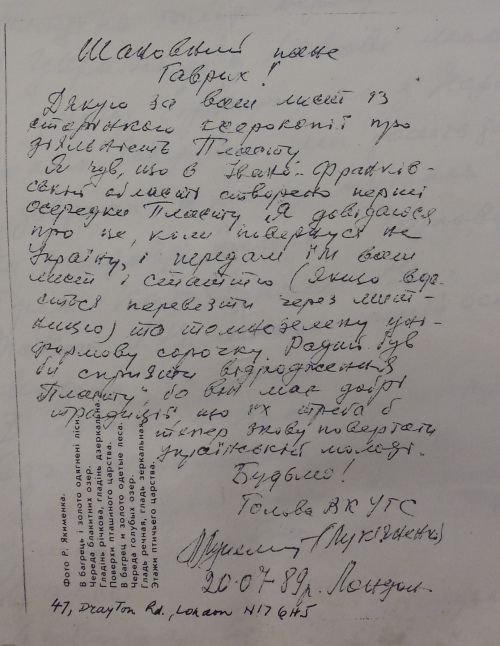 Шановний пане
Гаврих!
Дякую за ваш лист із
сторінкою ксерокопії про
діяльність Пласту.
Я чув, що в Івано-Франків-
ській області створено перші
осередки Пласту. Я довідаюся
про це, коли повернуся на
Україну, і передам їм ваш
лист і статтю (якщо вда-
сться перевезти через мит-
ницю) та
формову сорочку. Радий був
би сприяти відродженню
Пласту, бо він має добрі
традиції, що їх треба б
тепер знову повертати
українській молоді.
Будьмо!
Голова ВК УГС
(Лук'яненко)
20.07.89р. Лондон
47, Drayton Rd., London N17 6HJ
Фото Р. Якименка.
В багрець і золото одягнені ліси.
Череда блакитних озер.
Гладінь річкова, гладінь дзеркальна.
Поверхи пташиного царства.
В багрец и золото одетые леса.
Череда голубых озер.
Гладь речная, гладь зеркальная.
Этажи птичьего царства.